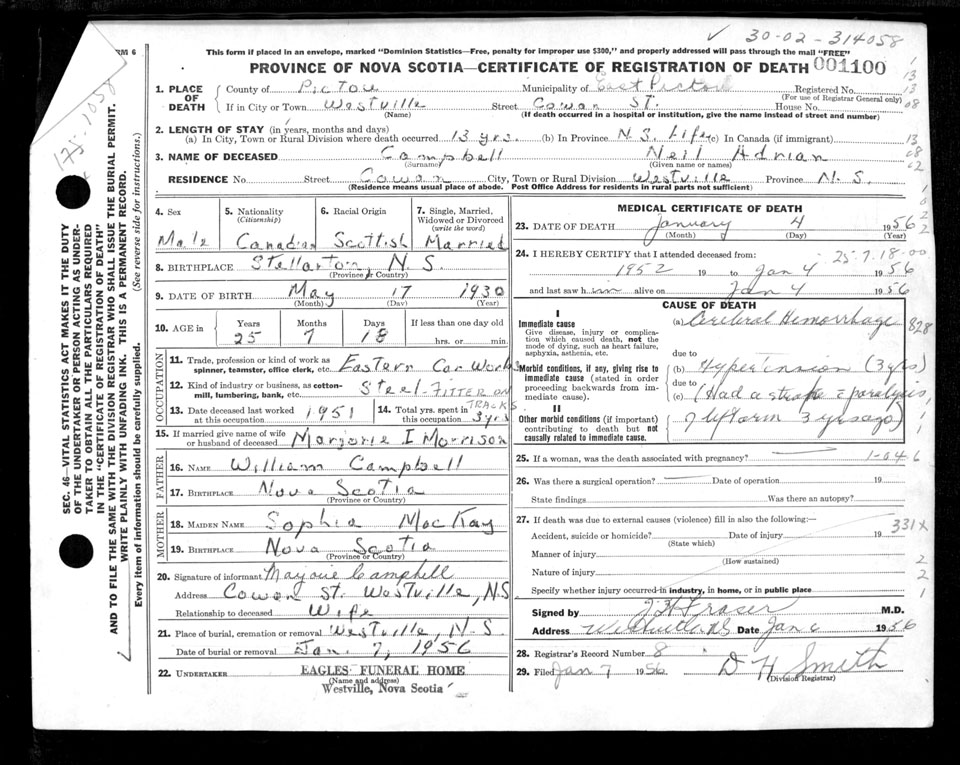 ✓ 30-02-314058
RM 6
This form if placed in an envelope, marked "Dominion Statistics—Free, penalty for improper use $300," and properly addressed will pass through the mail "FREE"
PROVINCE OF NOVA SCOTIA—CERTIFICATE OF REGISTRATION OF DEATH 001100
1. PLACE OF DEATH
County of Pictou Municipality of East Pictou Registered No.
(For use of Registrar General only)
If in City or Town Westville Street Cowan St. House No.
(Name) (If death occurred in a hospital or institution, give the name instead of street and number)
2. LENGTH OF STAY (in years, months and days)
(a) In City, Town or Rural Division where death occurred 13 yrs. (b) In Province N.S. Life (c) In Canada (if immigrant)
3. NAME OF DECEASED Campbell Neil Adrian
(Surname) (Given name or names)
RESIDENCE No. Street Cowan City, Town or Rural Division Westville Province N.S.
(Residence means usual place of abode. Post Office Address for residents in rural parts not sufficient)
4. Sex
Male
5. Nationality
(Citizenship)
Canadian
6. Racial Origin
Scottish
7. Single, Married, Widowed or Divorced
(write the word)
Married
8. BIRTHPLACE Stellarton, N.S.
(Province or Country)
9. DATE OF BIRTH May 17 1930
(Month) (Day) (Year)
10. AGE in Years Months Days If less than one day old
25 7 18 hrs. or min.
OCCUPATION
11. Trade, profession or kind of work as spinner, teamster, office clerk, etc. Eastern Car Works
12. Kind of industry or business, as cotton-mill, lumbering, bank, etc. Steel-FITTER ON TRACKS
13. Date deceased last worked at this occupation 1951
14. Total yrs. spent in this occupation 3 yrs
15. If married give name of wife or husband of deceased Marjorie I Morrison
FATHER
16. NAME William Campbell
17. BIRTHPLACE Nova Scotia
(Province or Country)
MOTHER
18. MAIDEN NAME Sophia MacKay
19. BIRTHPLACE Nova Scotia
(Province or Country)
20. Signature of informant Marjorie Campbell
Address Cowan St. Westville, N.S
Relationship to deceased Wife
21. Place of burial, cremation or removal Westville, N.S.
Date of burial or removal Jan. 7, 1956
22. UNDERTAKER EAGLES FUNERAL HOME
(Name and address)
Westville, Nova Scotia
MEDICAL CERTIFICATE OF DEATH
23. DATE OF DEATH January 4 1956
(Month) (Day) (Year)
24. I HEREBY CERTIFY that I attended deceased from: 25.7.18-00
1952 19 to Jan 4 1956
and last saw him alive on Jan 4 1956
CAUSE OF DEATH
I
Immediate cause
Give disease, injury or complication which caused death, not the mode of dying, such as heart failure, asphyxia, asthenia, etc.
(a) Cerebral Hemorrhage 828
due to
Morbid conditions, if any, giving rise to immediate cause (stated in order proceeding backwards from immediate cause).
(b) (3 yrs)
due to
(c) (Had a stroke = paralysis,
II
Other morbid conditions (if important) contributing to death but not causally related to immediate cause.
7 left arm 3 yrs ago)
25. If a woman, was the death associated with pregnancy? 1-046
26. Was there a surgical operation? Date of operation 19
State findings Was there an autopsy?
27. If death was due to external causes (violence) fill in also the following:
331x
Accident, suicide or homicide? Date of injury 19
(State which)
Manner of injury
(How sustained)
Nature of injury
Specify whether injury occurred in industry, in home, or in public place
Signed by J H Fraser M.D.
Address Date Jan 6 1956
28. Registrar's Record Number 8
29. Filed Jan 7 1956 D H Smith
(Division Registrar)
175-1058
SEC. 46—VITAL STATISTICS ACT MAKES IT THE DUTY
OF THE UNDERTAKER OR PERSON ACTING AS UNDER-
TAKER TO OBTAIN ALL THE PARTICULARS REQUIRED
IN THE "CERTIFICATE OF REGISTRATION OF DEATH"
AND TO FILE THE SAME WITH THE DIVISION REGISTRAR WHO SHALL ISSUE THE BURIAL PERMIT.
WRITE PLAINLY WITH UNFADING INK. THIS IS A PERMANENT RECORD.
Every item of information should be carefully supplied. (See reverse side for instructions.)